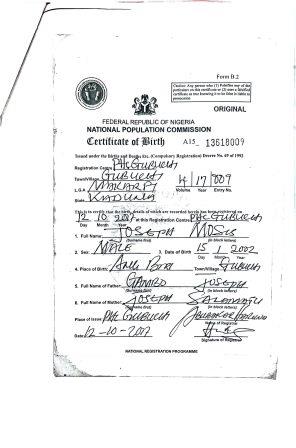 Form B.2
Caution: Any person who (1) Falsifies any of the particulars on this certificate or (2) uses a falsified certificate as true knowing it to be false is liable to prosecution
ORIGINAL
FEDERAL REPUBLIC OF NIGERIA
NATIONAL POPULATION COMMISSION
Certificate of Birth A15 13618009
Issued under the Births and Deaths Etc. (Compulsory Registration) Decree No. 69 of 1992
Registration Centre PHC GUBUCHI
Town/Village GUBUCHI
L.G.A. MAKARFI 4 17 009
State KADUNA Volume Year Entry No.
This is to certify that the birth, details of which are recorded herein has been registered on
12 10 2017 at PHC GUBUCHI
Day Month Year Registration Centre
1. Full Name: JOSEPH MOSES
(Surname first) (in block letters)
2. Sex: MALE 3. Date of Birth 15 1 2002
Day Month Year
4. Place of Birth: Town/Village GUBUCHI
5. Full Name of Father: JOSEPH
(Surname first) (in block letters)
6. Full Name of Mother: JOSEPH
(Surname first) (in block letters)
Place of Issue PHC GUBUCHI
Name of Registrar
Date 12-10-2017
Signature of Registrar
NATIONAL REGISTRATION PROGRAMME